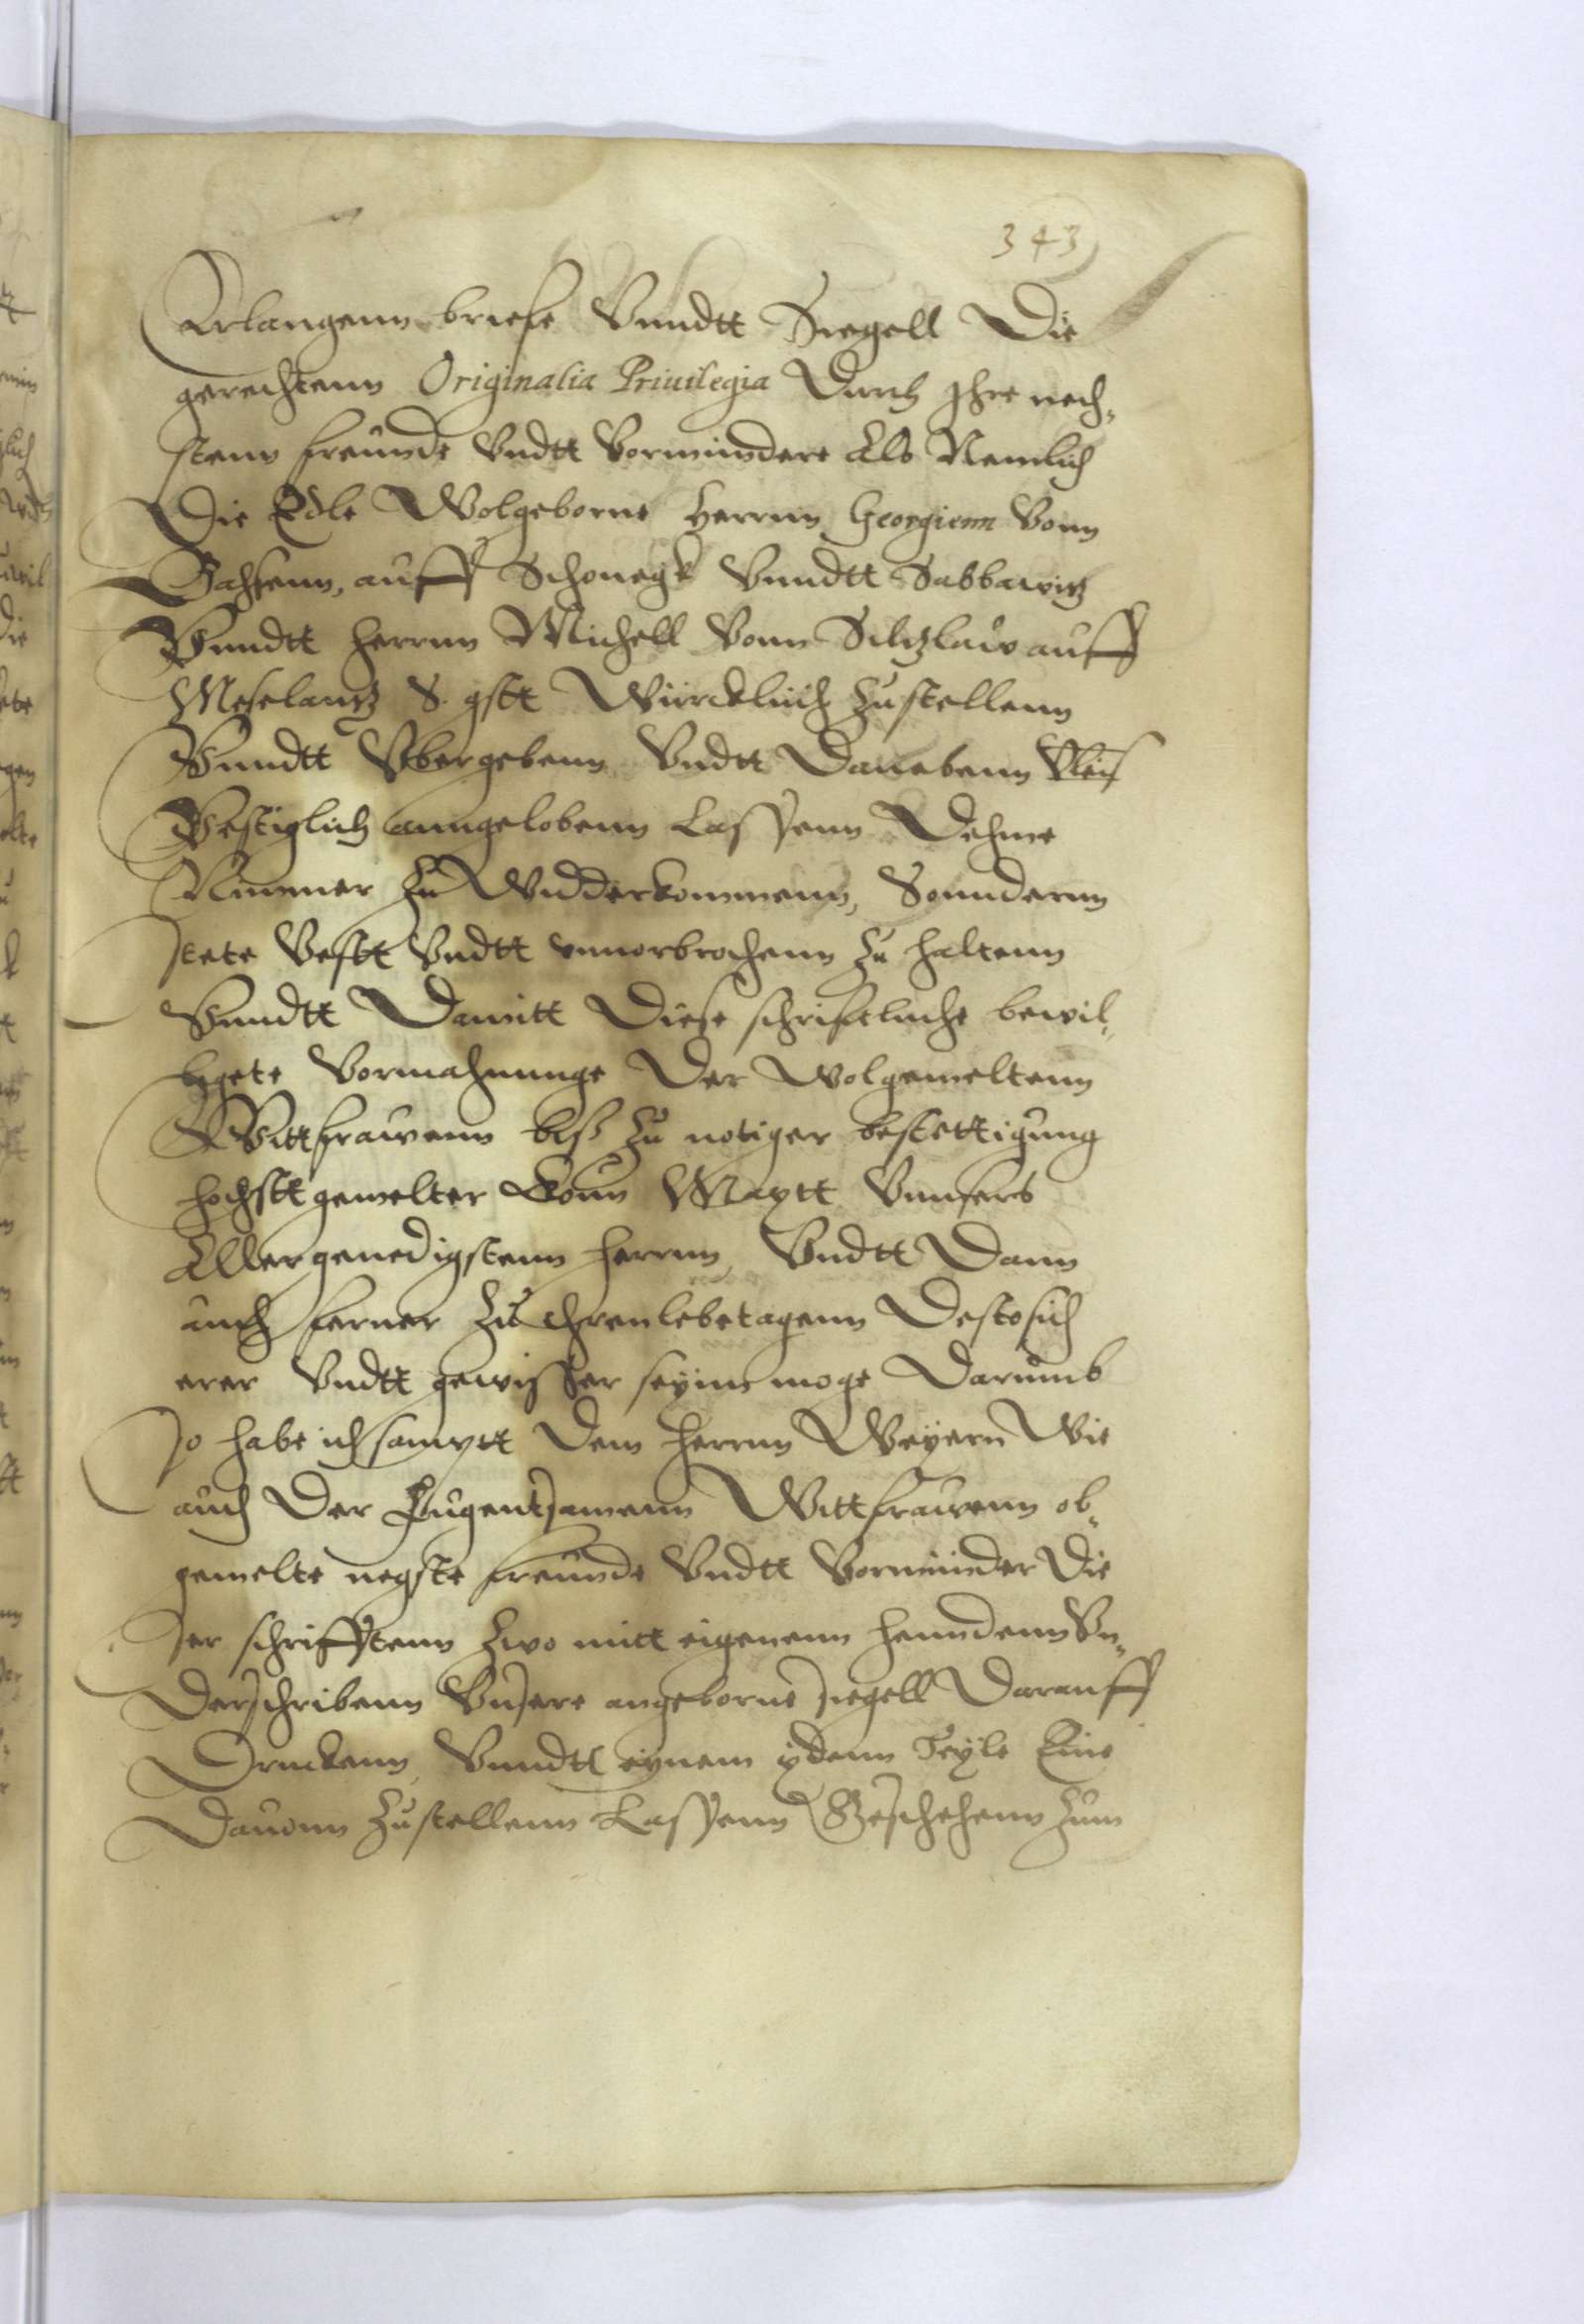 343
Erlangenn briefe Vnndtt Siegell Die
gerechtenn Originalia Priuilegia Durch Ihre nech-
stenn freunde Vndtt Vormündere Als Nemlich
Die Edle Wolgeborne Herrnn Georgienn Vonn
auff Schonegk Vnndtt Sabbawitz
Vnndtt Herrnn Michell Vonn auff
S. gstt Würcklich Zustellenn
Vnndtt Vbergebenn Vndtt Danebenn
Vestiglich anngelobenn Lassenn Dehme
Nimmer Zu Widderkommenn, Sonndernn
stete Vestt Vndtt vnnorbrochenn Zu haltenn
Vnndtt Damitt Diese schriftliche bewil-
ligete Vormahnunge Der Wolgemeltenn
Wittfrawenn biß Zu notiger bestettigung
hochstt gemelter Konn Maytt Vnnsers
Allergenedigstenn herrnn Vndtt Dann
auch ferner Zu Ihren lebetagenn Desto sich
erer Vndtt gewisser seyinn moge Darumb
so habe ich samptt Dem herrnn Weyern Wie
auch Der Tugentsamenn Wittfrawenn ob-
gemelte negste freunde Vndtt Vorminder Die
ser schrifftenn Zwo mitt eigenenn henndenn Vn-
derschribenn Vnsere angeborne siegell Darauff
Druckenn Vnndtt eynem ydenn Teyle Eine
Dauonn Zustellenn Lassenn Geschehenn Zum